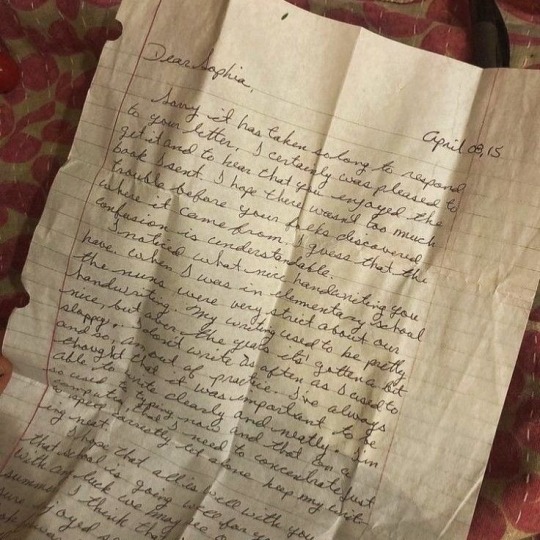 Dear Sophia,
April 08, 15
Sorry it has taken so long to respond
to your letter. I certainly was pleased to
get it and to hear that you enjoyed the
book I sent. I hope there wasn't too much
trouble before your folks discovered
where it came from. I guess that the
confusion is understandable.
I noticed what nice handwriting you
have. When I was in elementary school
the nuns were very strict about our
handwriting. My writing used to be pretty
nice, but over the years it's gotten a bit
sloppy. I don't write as often as I used to
and so, am out of practice. I've always
thought that it was important to be
able to write clearly and neatly. I'm
so used to typing now and that on a
computer, that I need to concentrate just
on let alone keep my writ-
ing neat.
I hope that all is well with you
that school is going well for you
with any luck we may see
summer. I think the
sure